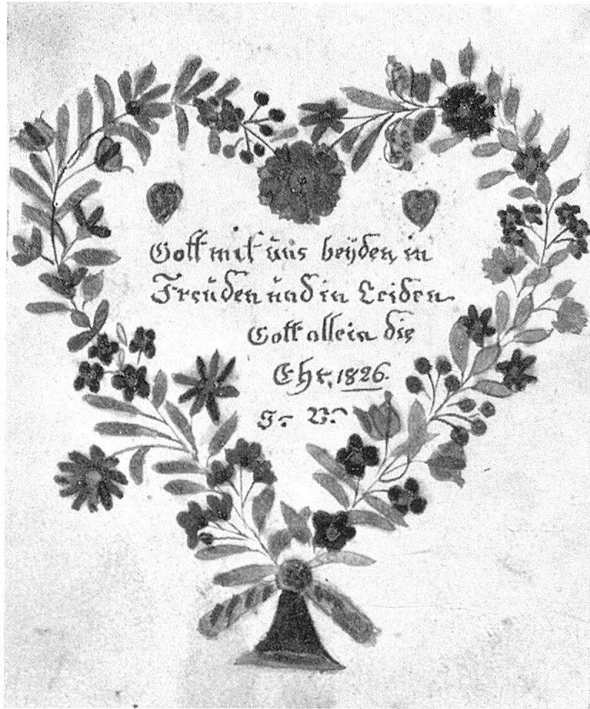 Gott mit uns beÿden in
Freuden und in Leiden
Gott allein die
Ehr, 1826.
S. V.